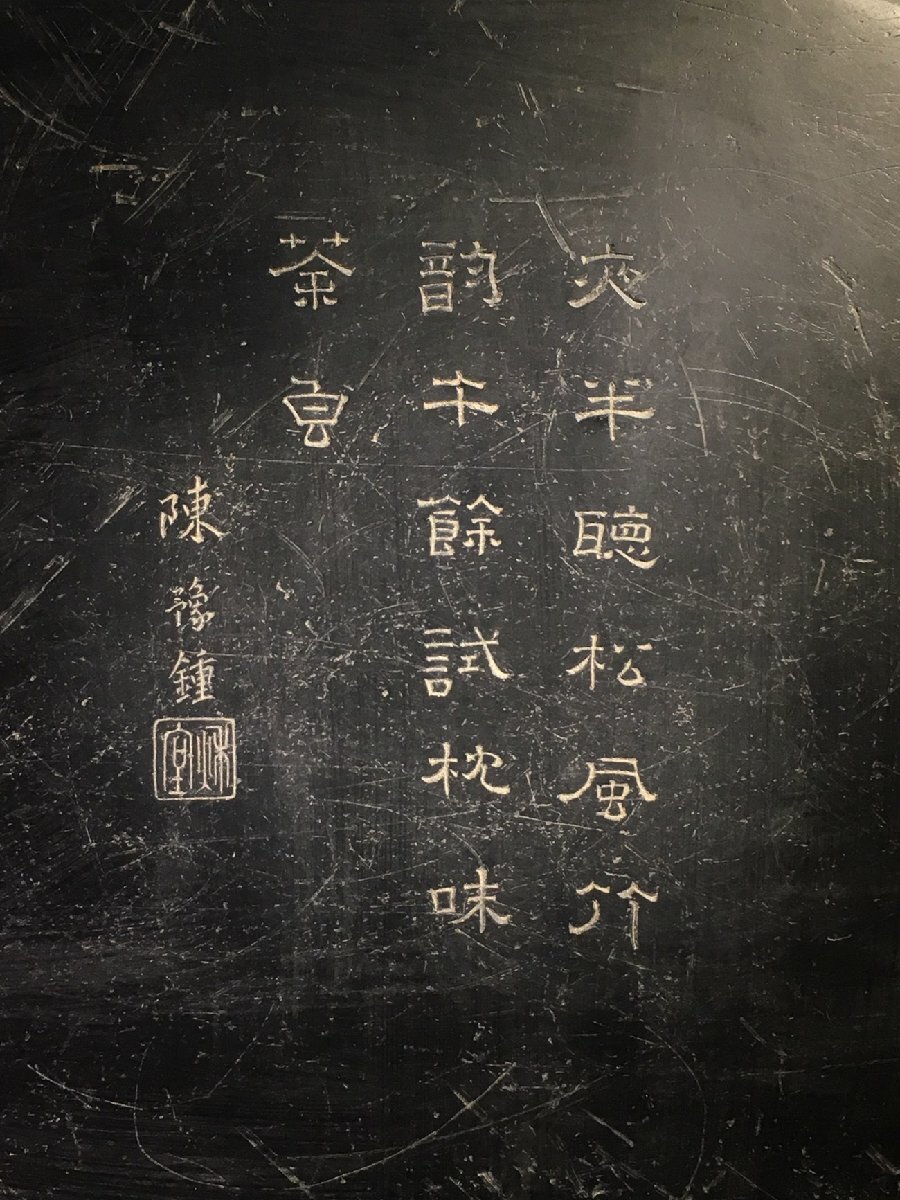 夜半聽松風竹
韵午餘試枕味
茶
陳豫鍾
秋堂